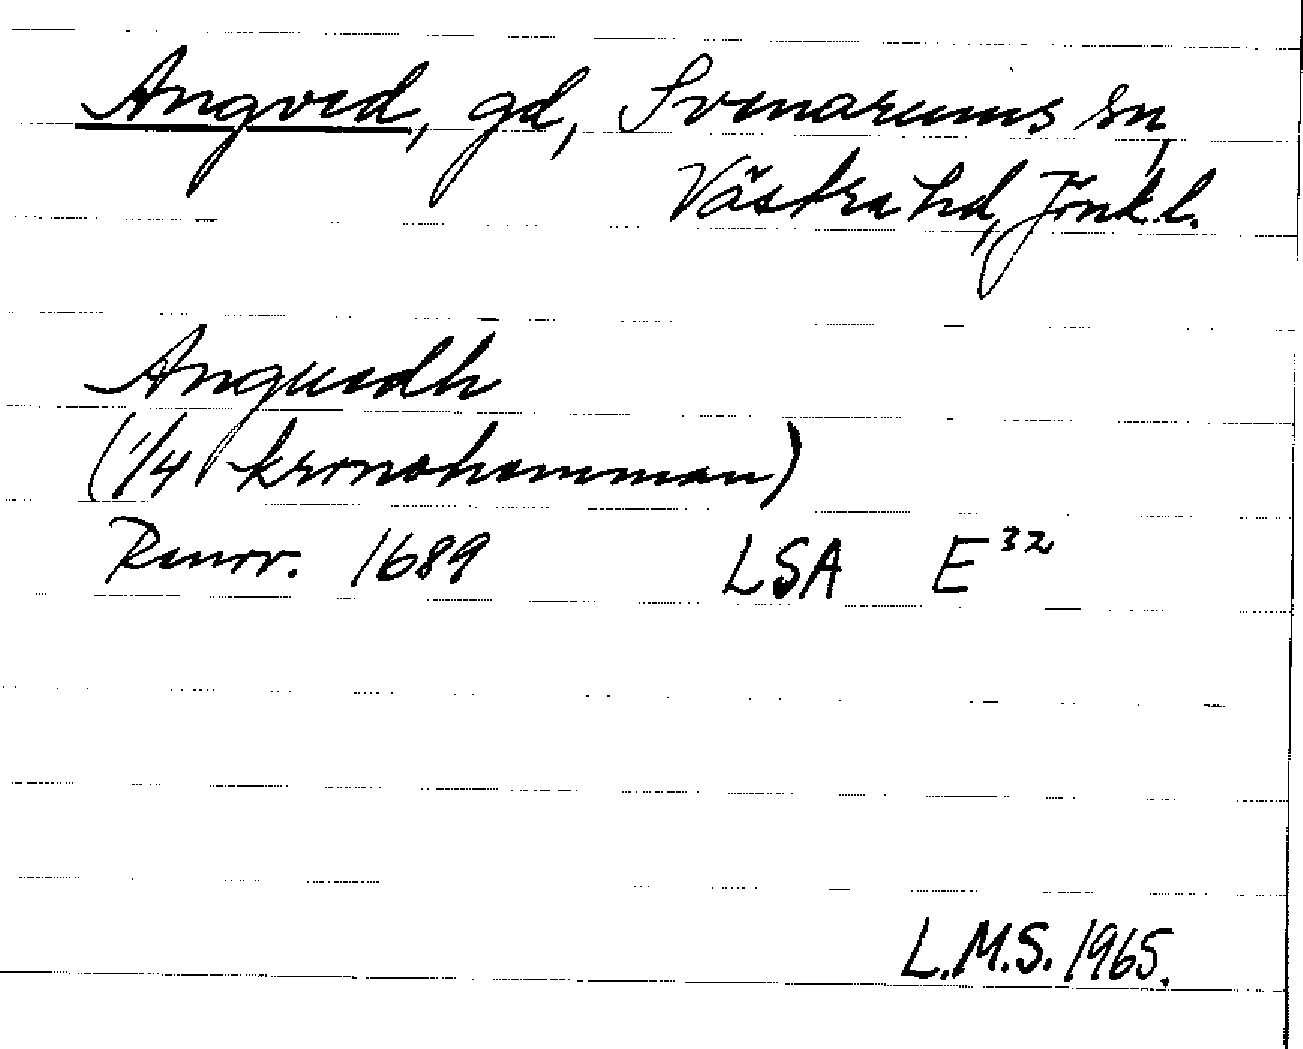 Angved, gd, Svenarums sn,
Västra hd, Jönk.l.
Anguedh
(1/4 kronohemman)
Renov. 1689 LSA E³²
L.M.S. 1965.